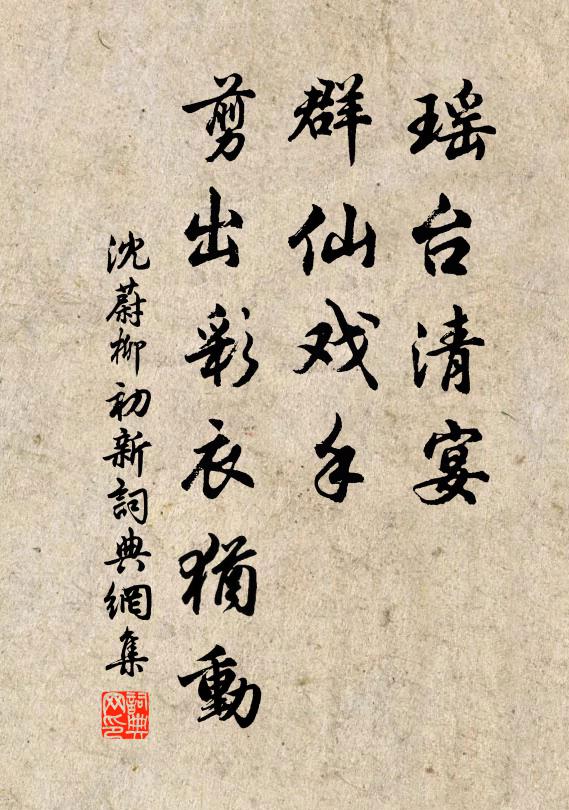 瑶台清宴
群仙戏手
剪出彩衣犹動
沈蔚柳初新詞典網集
詞典网印